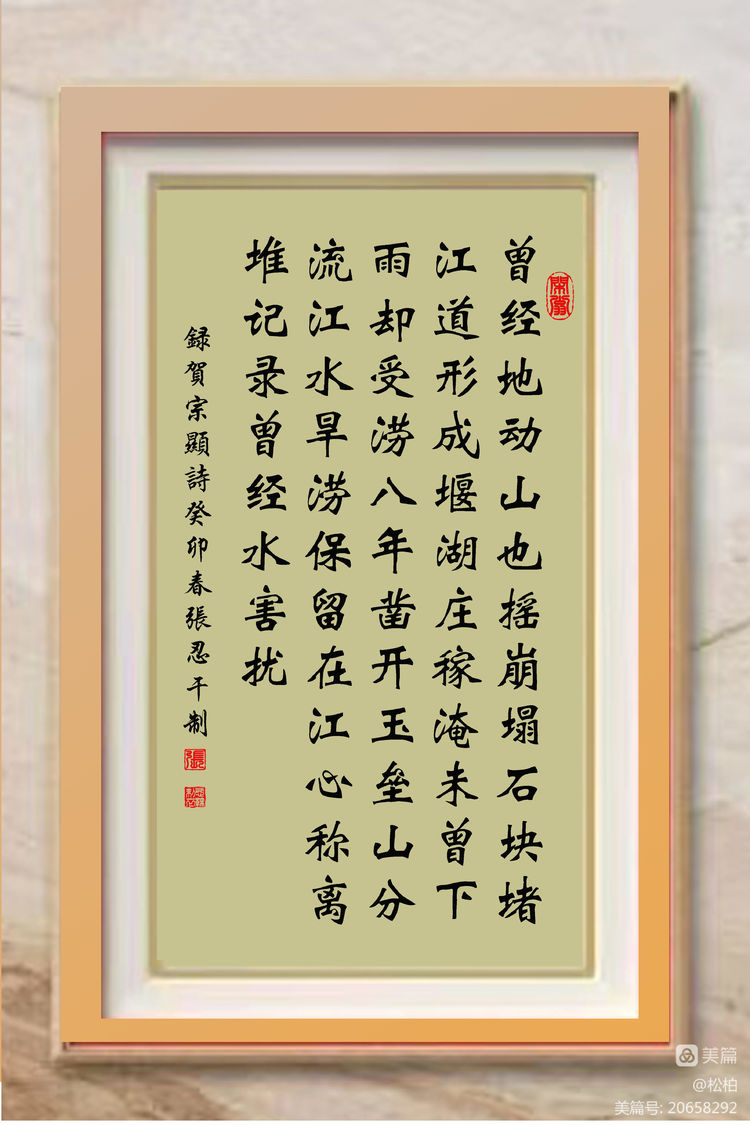 曾经地动山也摇崩塌石块堵
江道形成堰湖庄稼淹未曾下
雨却受涝八年凿开玉垒山分
流江水旱涝保留在江心称离
堆记录曾经水害扰
録賀宗顯詩癸卯春張忍千制
張
美篇
@松柏
美篇号: 20658292